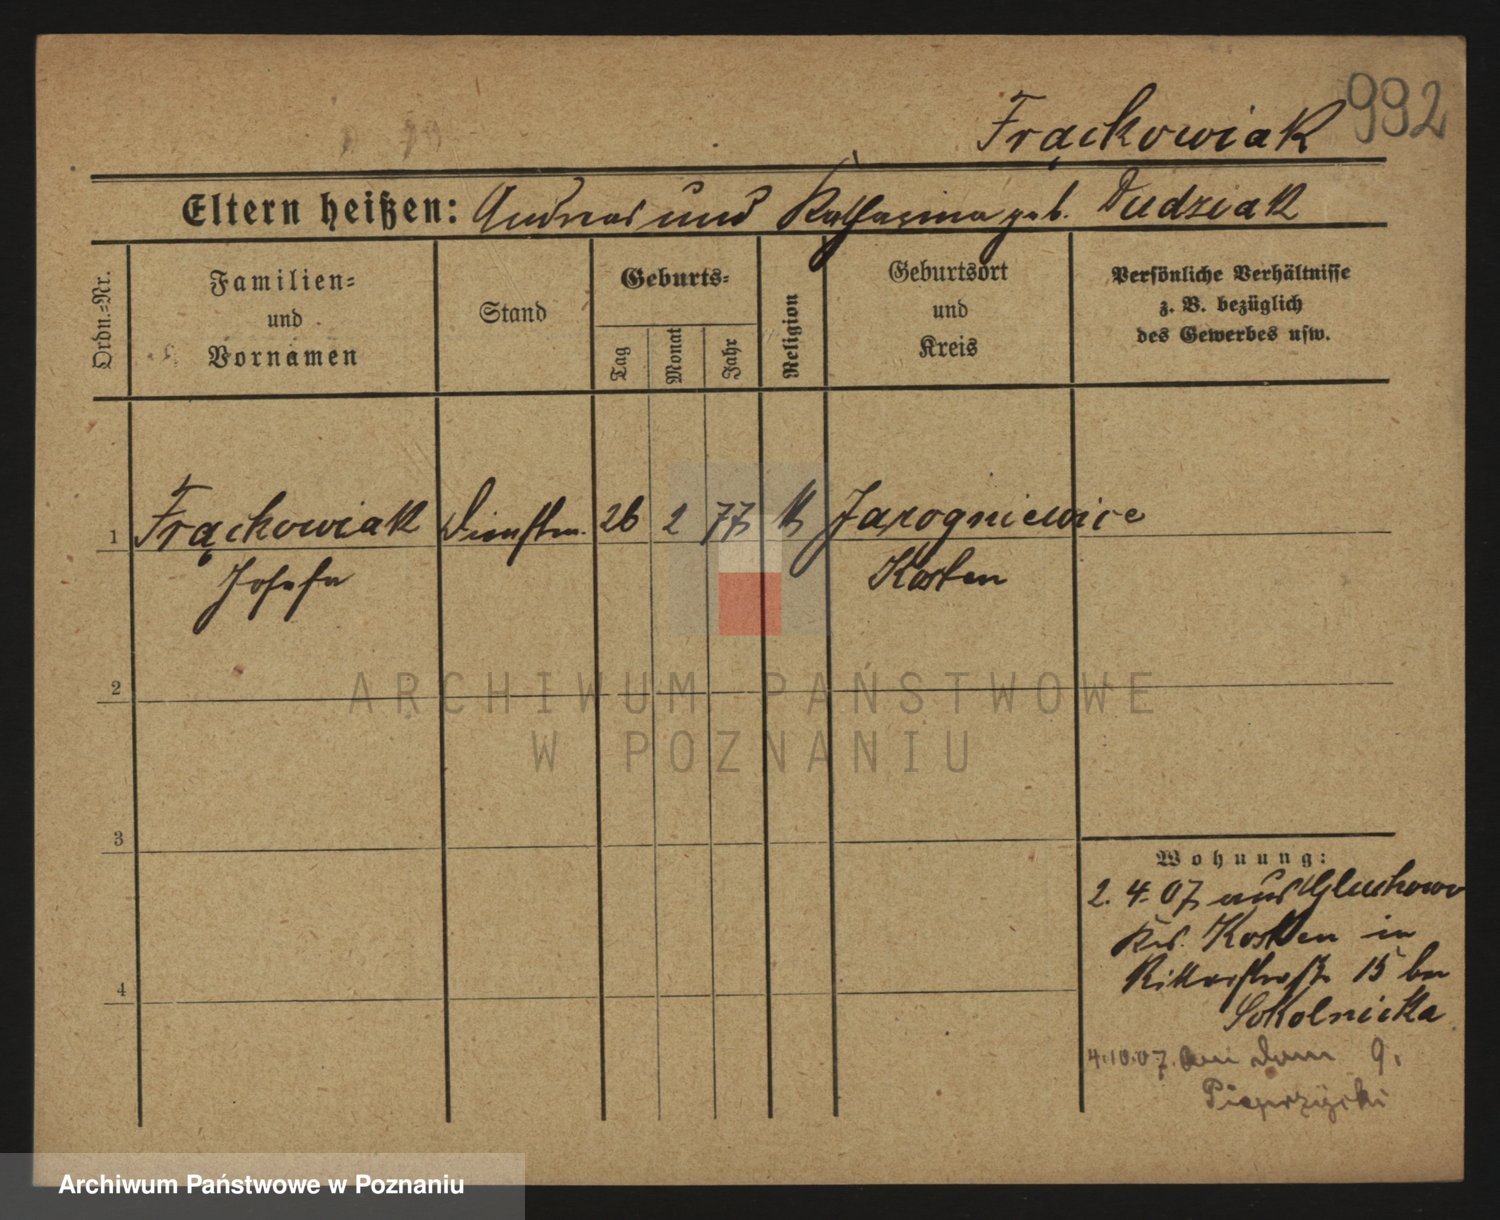 Frąckowiak 992
Eltern heißen: Andreas und Katharina geb. Dudziak
Ordn.=Nr.
Familien=
und
Vornamen
Stand
Geburts=
Tag
Monat
Jahr
Religion
Geburtsort
und
Kreis
Persönliche Verhältnisse
z. B. bezüglich
des Gewerbes usw.
1 Frąckowiak Dienstm. 26 2 77 k Jarogniewice
Josefa Kosten
2
3
4
Wohnung:
2. 4. 07 aus Gluchowo
Krs. Kosten in
Ritterstraße 15 bei
Sokolnicka
4.10.07. Am Dom 9.
Pieprzycki
ARCHIWUM PAŃSTWOWE
W POZNANIU
Archiwum Państwowe w Poznaniu